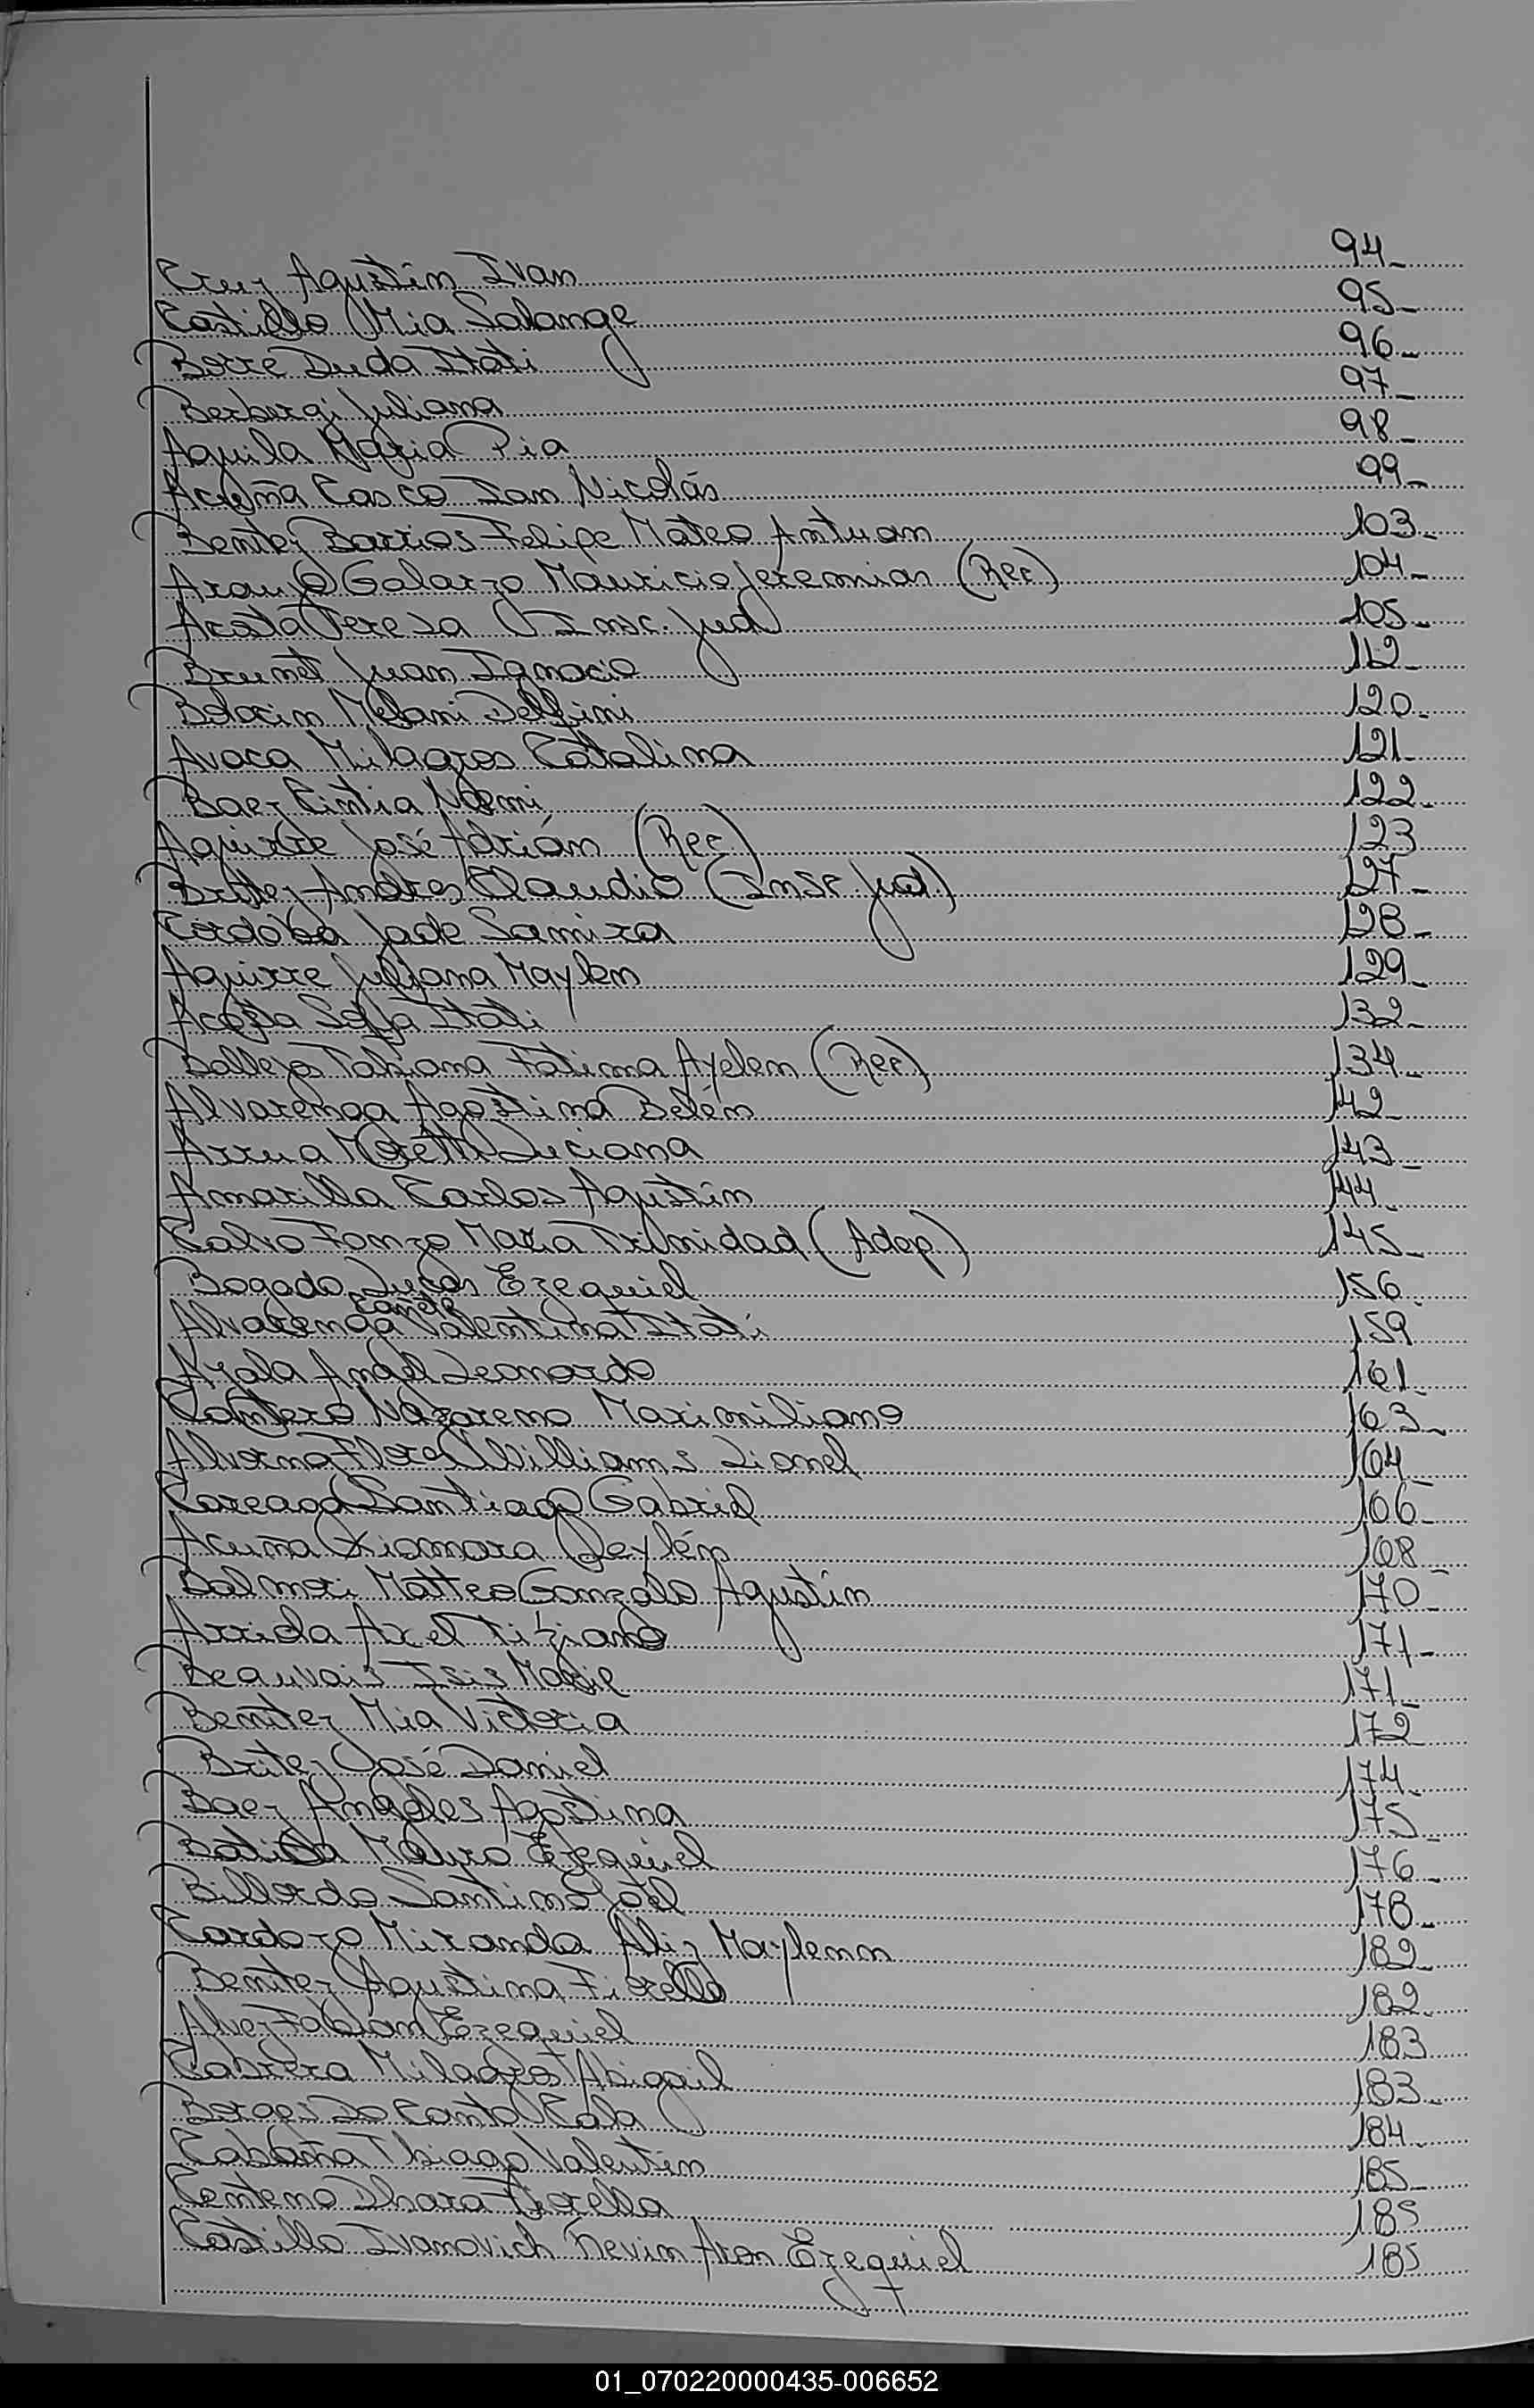 Cruz Agustín Ivan 94-
Castillo Mia Solange 95-
Borre Duda Itati 96-
Berbergi Juliana 97-
Aguila Maria Pia 98-
Acuña Casco Ian Nicolás 99-
Benitez Barrios Felipe Mateo Antuan 103-
Araujo Galarzo Mauricio Jeremias (Rec) 104-
Acosta Teresa Insc. Jud 105-
Brunet Juan Ignacio 112-
Melani Delfini 120-
Milagros Catalina 121-
Baez Cintia Noemi 122-
Aguirre José Adrián (Rec) 123
Britez Andres Claudio (Insc Jud.) 127-
Córdoba Jade Samira 128-
Aguirre Juliana Maylen 129-
Acosta Sofia Itati 132-
Ballejo Tatiana Fátima Ayelem (Rec) 134-
Alvarenga Agostina Belén 142-
Arrua Moretti Luciana 143-
Amarilla Carlos Agustín 144-
Calvo Fonzo Maria Trinidad (Adop) 145-
Bogado Lucas Ezequiel 156-
Alvarenga Valentina Itati 159
Ayala Angel Leonardo 161-
Cantero Nazareno Maximiliano 163-
Williams Lionel 164-
Careaga Santiago Gabriel 166-
Acuña Xiomara 168-
Balmori Matteo Gonzalo Agustín 170-
Arrida Axel Tiziano 171-
Beauvais Isis 171-
Benitez Mia Victoria 172
Britez José Daniel 174-
Baez Agostina 175-
Batista Mauro Ezequiel 176-
Billordo Santino Joel 178-
Cardozo Miranda Aliz Maylenn 182-
Benitez Agustina Fiorella 182-
Alvez Fabian Ezequiel 183
Cabrera Milagros Abigail 183-
Borges Do Canto 184-
Cabaña Thiago Valentin 185-
Centeno Dhara Fiorella 185
Castillo Ivanovich Kevin Aron Ezequiel 185
01_070220000435-006652